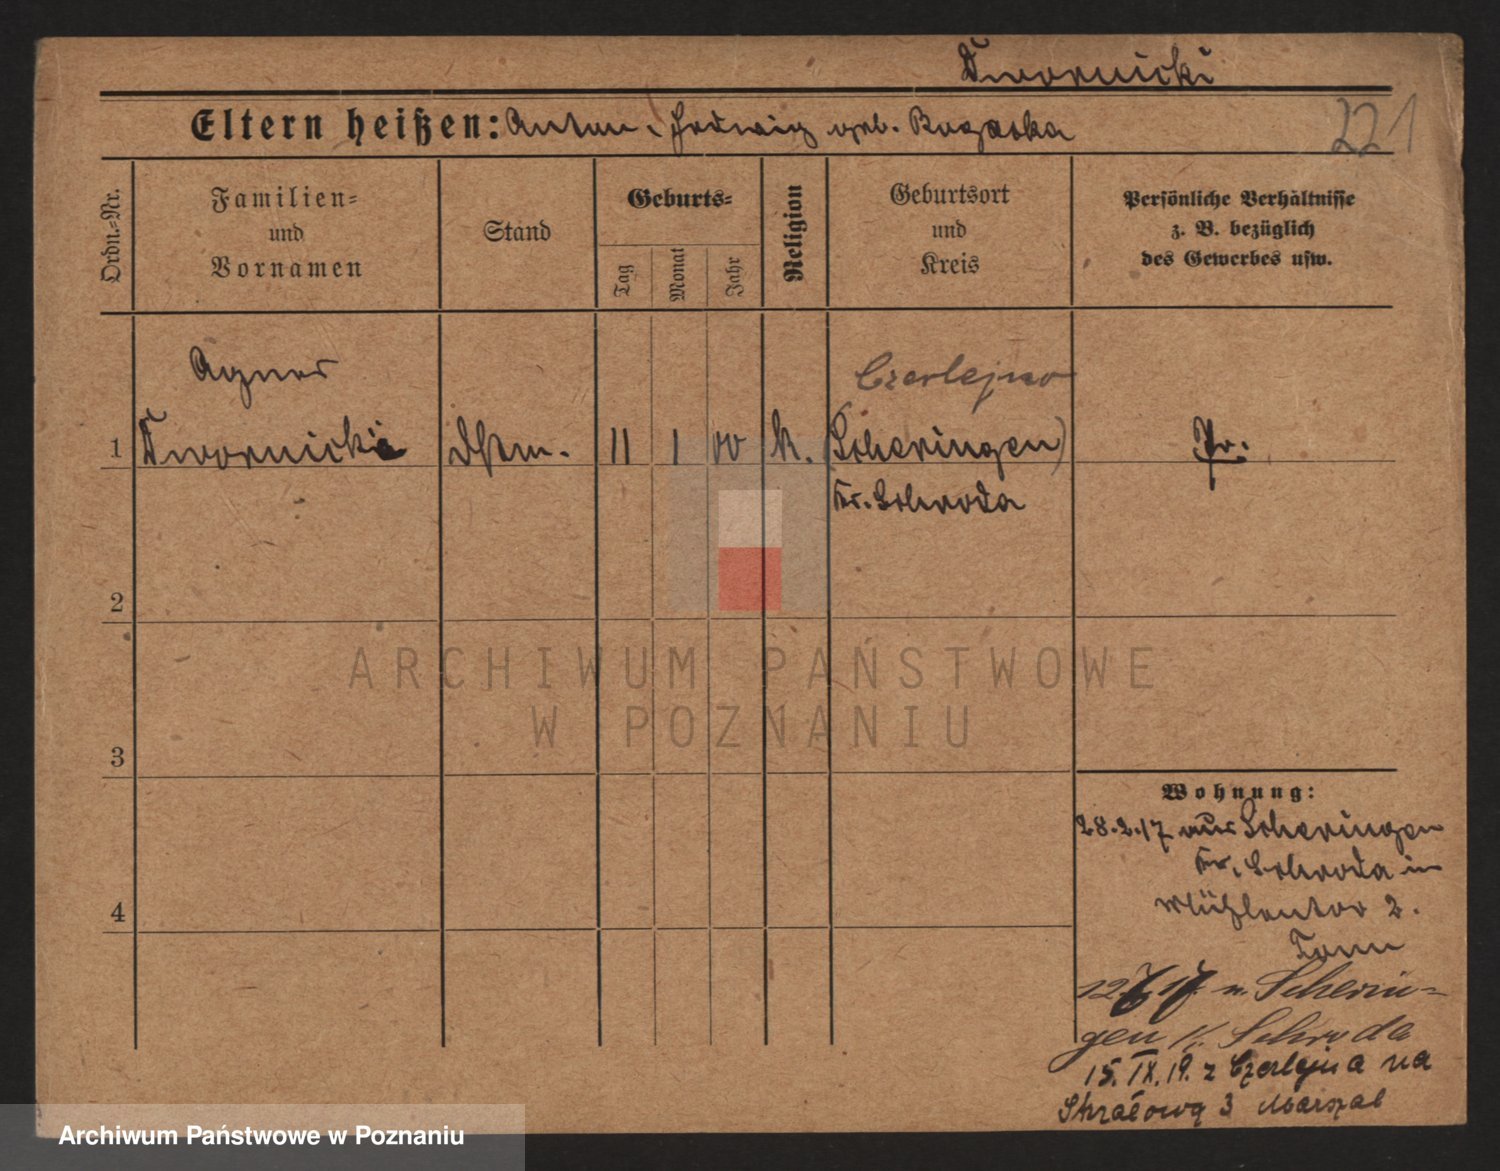 Dwornicki
Eltern heißen: Anton u. Hedwig geb. Rogacka
221
Ordn.-Nr.
Familien-
und
Vornamen
Stand
Geburts-
Tag
Monat
Jahr
Religion
Geburtsort
und
Kreis
Persönliche Verhältnisse
z. B. bezüglich
des Gewerbes usw.
Agnes
Czerlejno
1 Dwornicki Dstm. 11 1 00 K. (Scheringen) Pr.
Kr. Schroda
2
3
4
Wohnung:
28.2.17 aus Scheringen
Kr. Schroda in
Mühlentor 2.
12 17 n. Scherin-
gen K. Schroda
15. IX. 19. z Czerlejna na
Strzałową 3 Marszal
ARCHIWUM PAŃSTWOWE
W POZNANIU
Archiwum Państwowe w Poznaniu